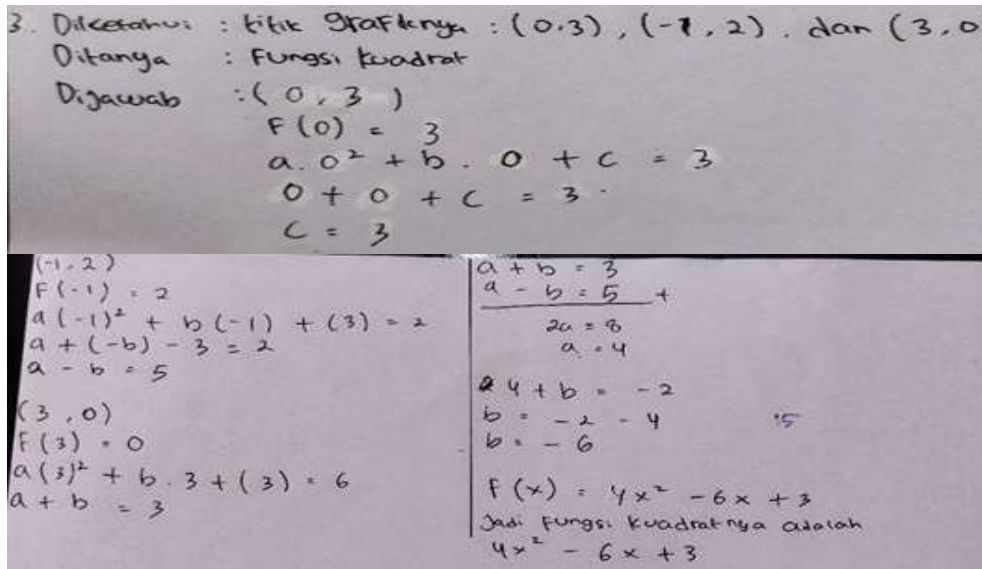 3. Diketahui : titik grafiknya : (0.3), (-1, 2). dan (3, 0
Ditanya : Fungsi kuadrat
Dijawab : ( 0, 3 )
F(0) = 3
a. 0² + b. 0 + c = 3
0 + 0 + c = 3.
c = 3
(-1. 2)
F(-1) = 2
a(-1)² + b(-1) + (3) = 2
a + (-b) - 3 = 2
a - b = 5
(3, 0)
F(3) = 0
a(3)² + b. 3 + (3) = 6
a + b = 3
a + b = 3
a - b = 5 +
2a = 8
a = 4
4 + b = -2
b = -2 - 4
b = -6
F(x) = 4x² - 6x + 3
Jadi fungsi kuadratnya adalah
4x² - 6x + 3